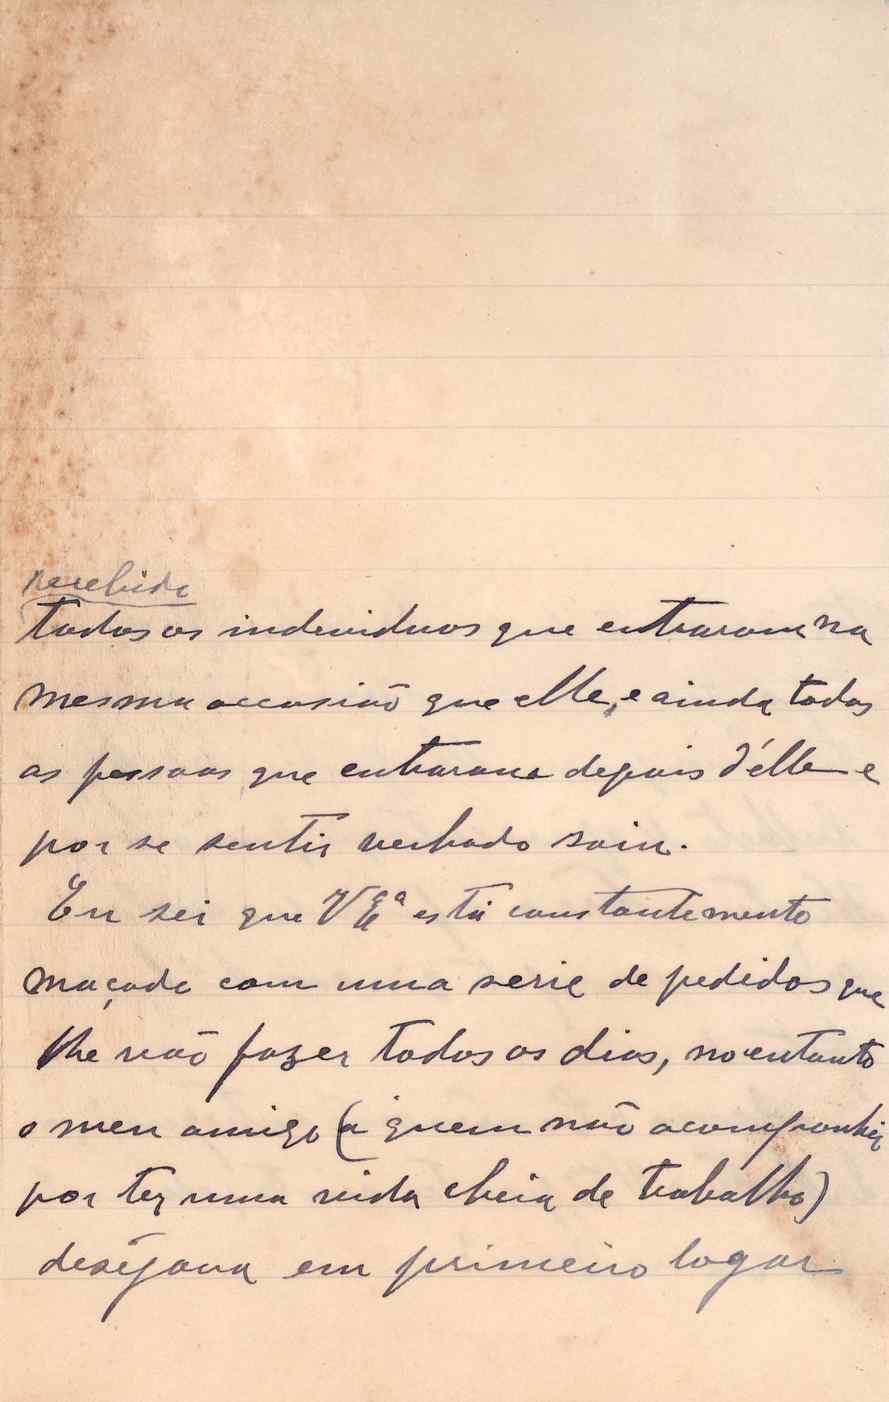 recebida
todos os individuos que entraram na
mesma occasião que elle, e ainda todas
as pessoas que entraram depois d'élle e
por se sentir vechado sair.
Eu sei que V Exª está constantemente
maçada com uma serie de pedidos que
lhe vão fazer todos os dias, no entanto
o meu amigo (a quem não acompanhei
por ter uma vida cheia de trabalho)
desejava em primeiro logar